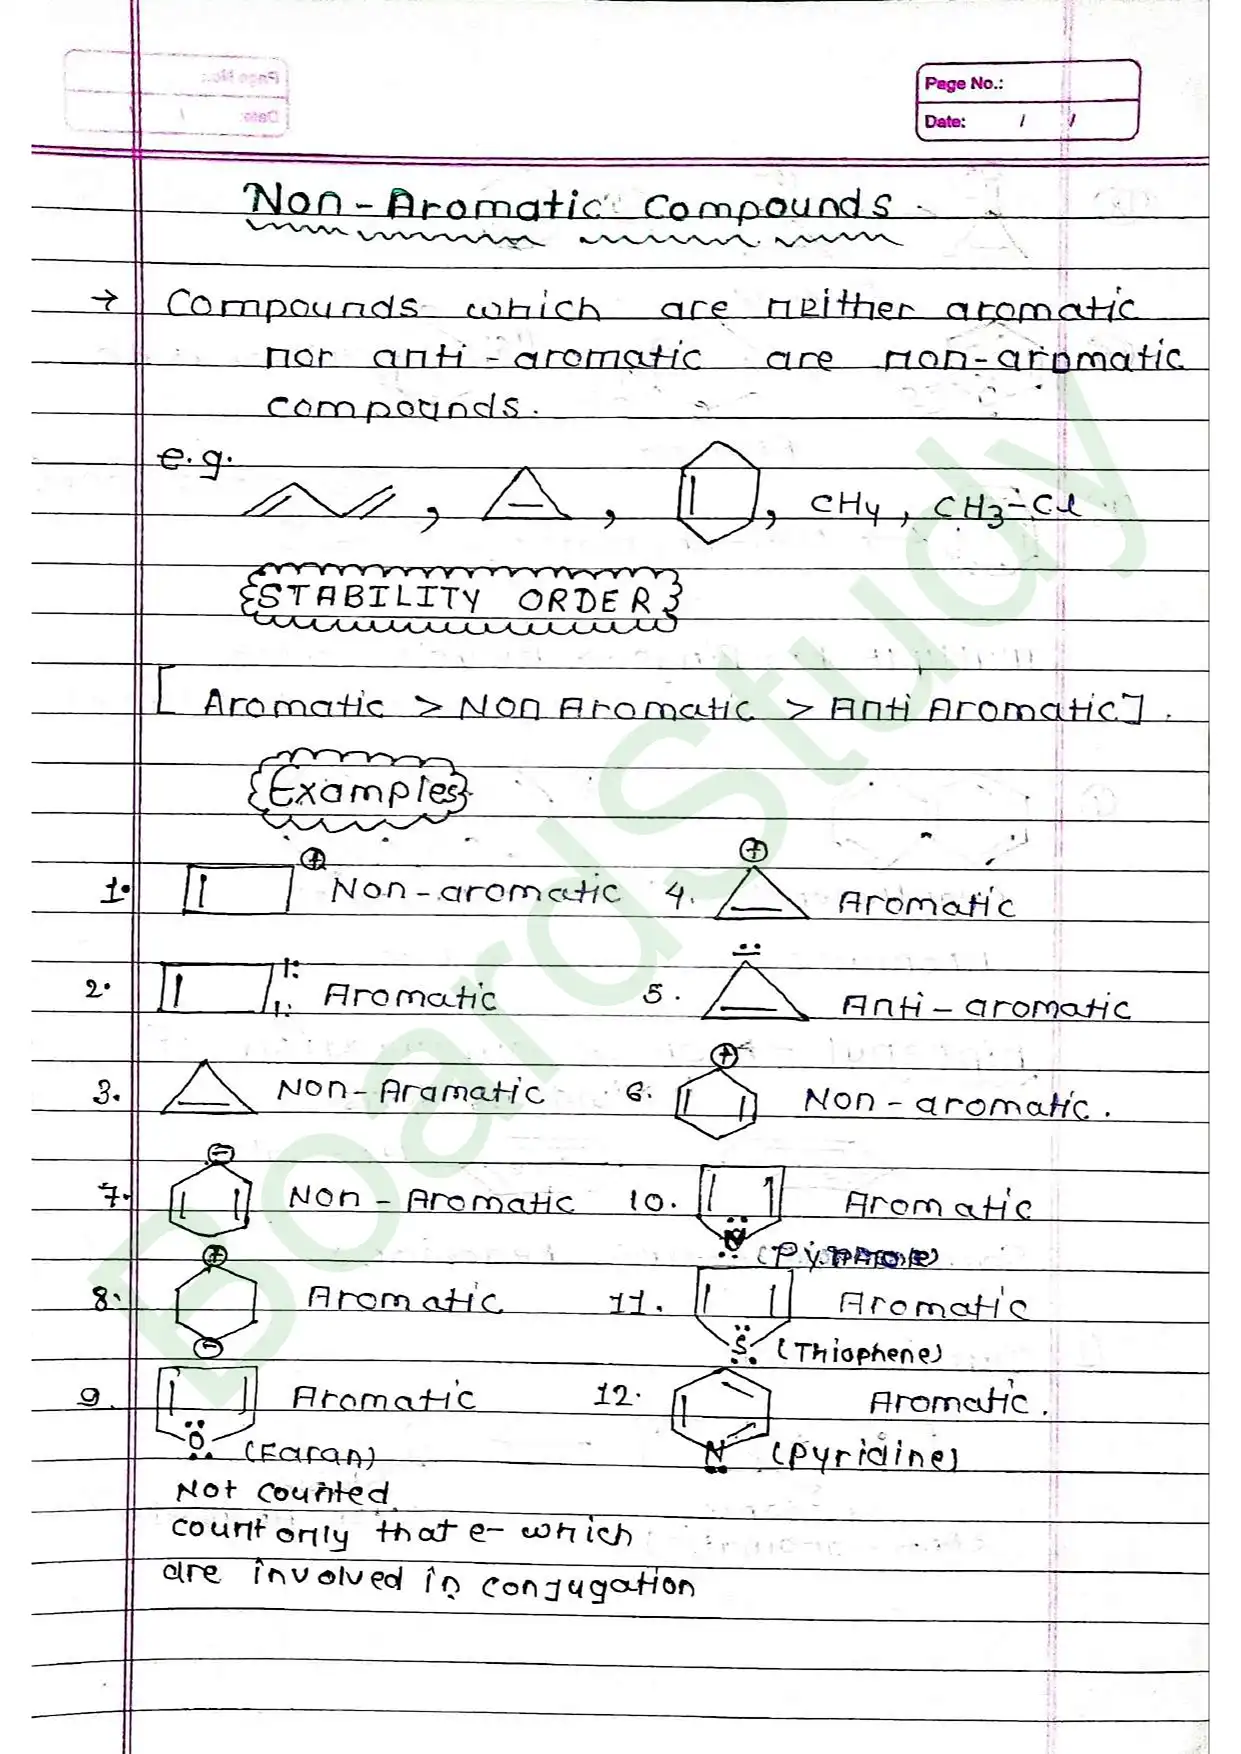 Page No.:
Date: / /
Non-Aromatic Compounds
→ Compounds which are neither aromatic
nor anti-aromatic are non-aromatic
compounds.
e.g.
, , , CH4, CH3-Cl
STABILITY ORDER
[ Aromatic > Non Aromatic > Anti Aromatic].
Examples
1. ⊕ Non-aromatic 4. ⊕ Aromatic
2. Aromatic 5. Anti-aromatic
3. Non-Aramatic 6. ⊕ Non-aromatic.
7. ⊖ Non-Aromatic 10. Aromatic
8. ⊕ ⊖ Aromatic 11. S Aromatic
(Thiophene)
9. O Aromatic 12. N Aromatic.
(Faran) (Pyridine)
Not counted
count only that e- which
are involved in conjugation
BoardStudy